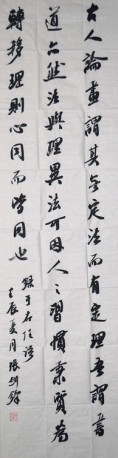 古人論畫謂其無定法而有定理吾謂書
道亦然法與理異法可因人之習慣秉質為
轉移理則心同而皆同也
錄于右任語
壬辰夏月張